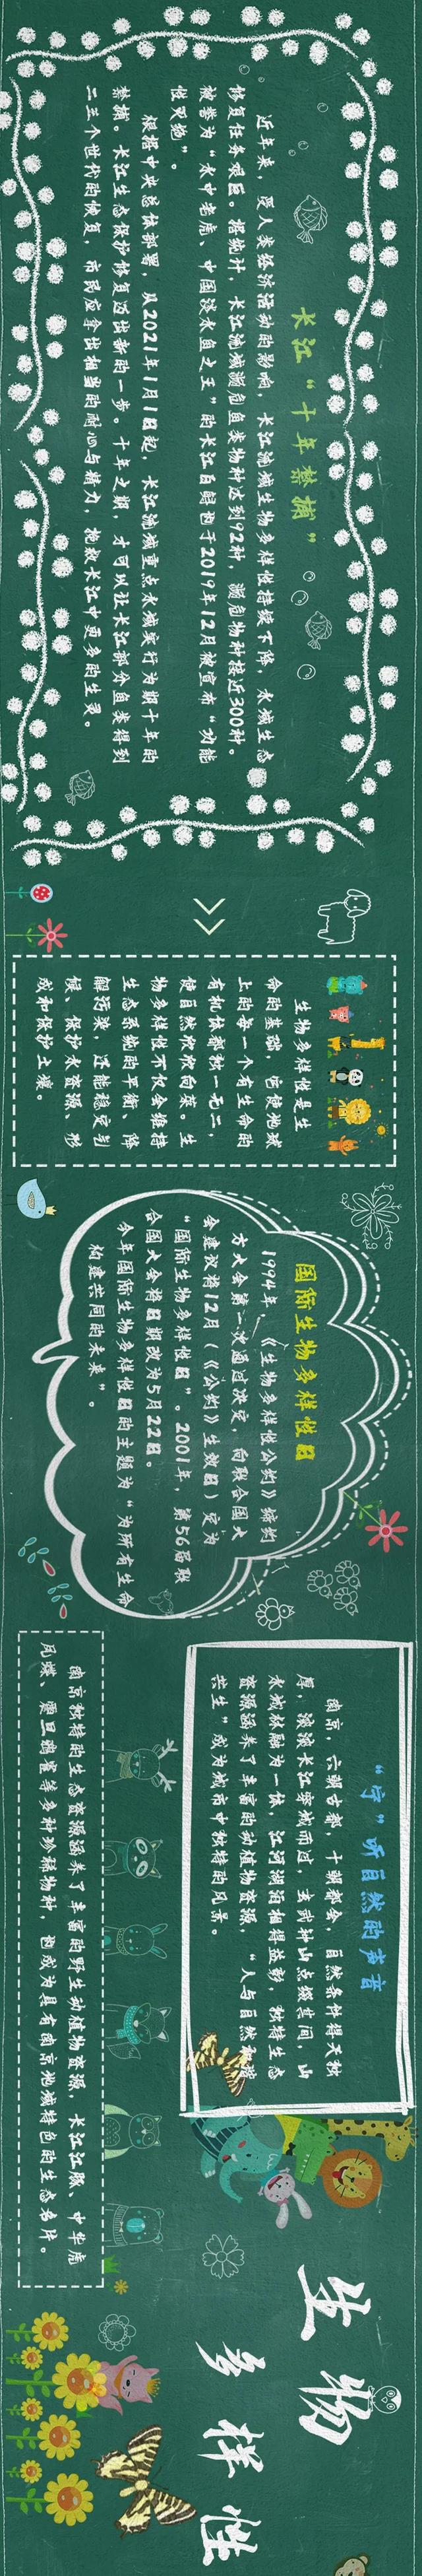 长江“十年禁捕”
近年来，受人类经济活动的影响，长江流域生物多样性持续下降，水域生态
修复任务艰巨。据统计，长江流域濒危鱼类物种达到92种，濒危物种接近300种。
被誉为“水中老虎、中国淡水鱼之王”的长江白鲟也于2019年12月被宣布“功能
性灭绝”。
根据中央总体部署，从2021年1月1日起，长江流域重点水域实行为期十年的
禁捕。长江生态保护修复迈出新的一步。十年之期，才可以让长江部分鱼类得到
二三个世代的恢复，市民应拿出相当的耐心与精力，挽救长江中更多的生灵。
生物多样性是生
命的基础，它使地球
上的每一个有生命的
有机体都独一无二，
使自然欣欣向荣。生
物多样性不仅会维持
生态系统的平衡、降
解污染，还能稳定气
候、保护水资源、形
成和保护土壤。
国际生物多样性日
1994年，《生物多样性公约》缔约
方大会第一次通过决定，向联合国大
会建议将12月（《公约》生效日）定为
“国际生物多样性日”。2001年，第56届联
合国大会将日期改为5月22日。
今年国际生物多样性日的主题为“为所有生命
构建共同的未来”。
“宁”听自然的声音
南京，六朝古都，十朝都会，自然条件得天独
厚，滚滚长江穿城而过，玄武钟山点缀其间，山
水城林融为一体，江河湖泊相得益彰，独特生态
资源涵养了丰富的动植物资源，“人与自然和谐
共生”成为城市中独特的风景。
南京独特的生态资源涵养了丰富的野生动植物资源，长江江豚、中华虎
凤蝶、震旦鸦雀等多种珍稀物种，也成为具有南京地域特色的生态名片。
生物
多样性